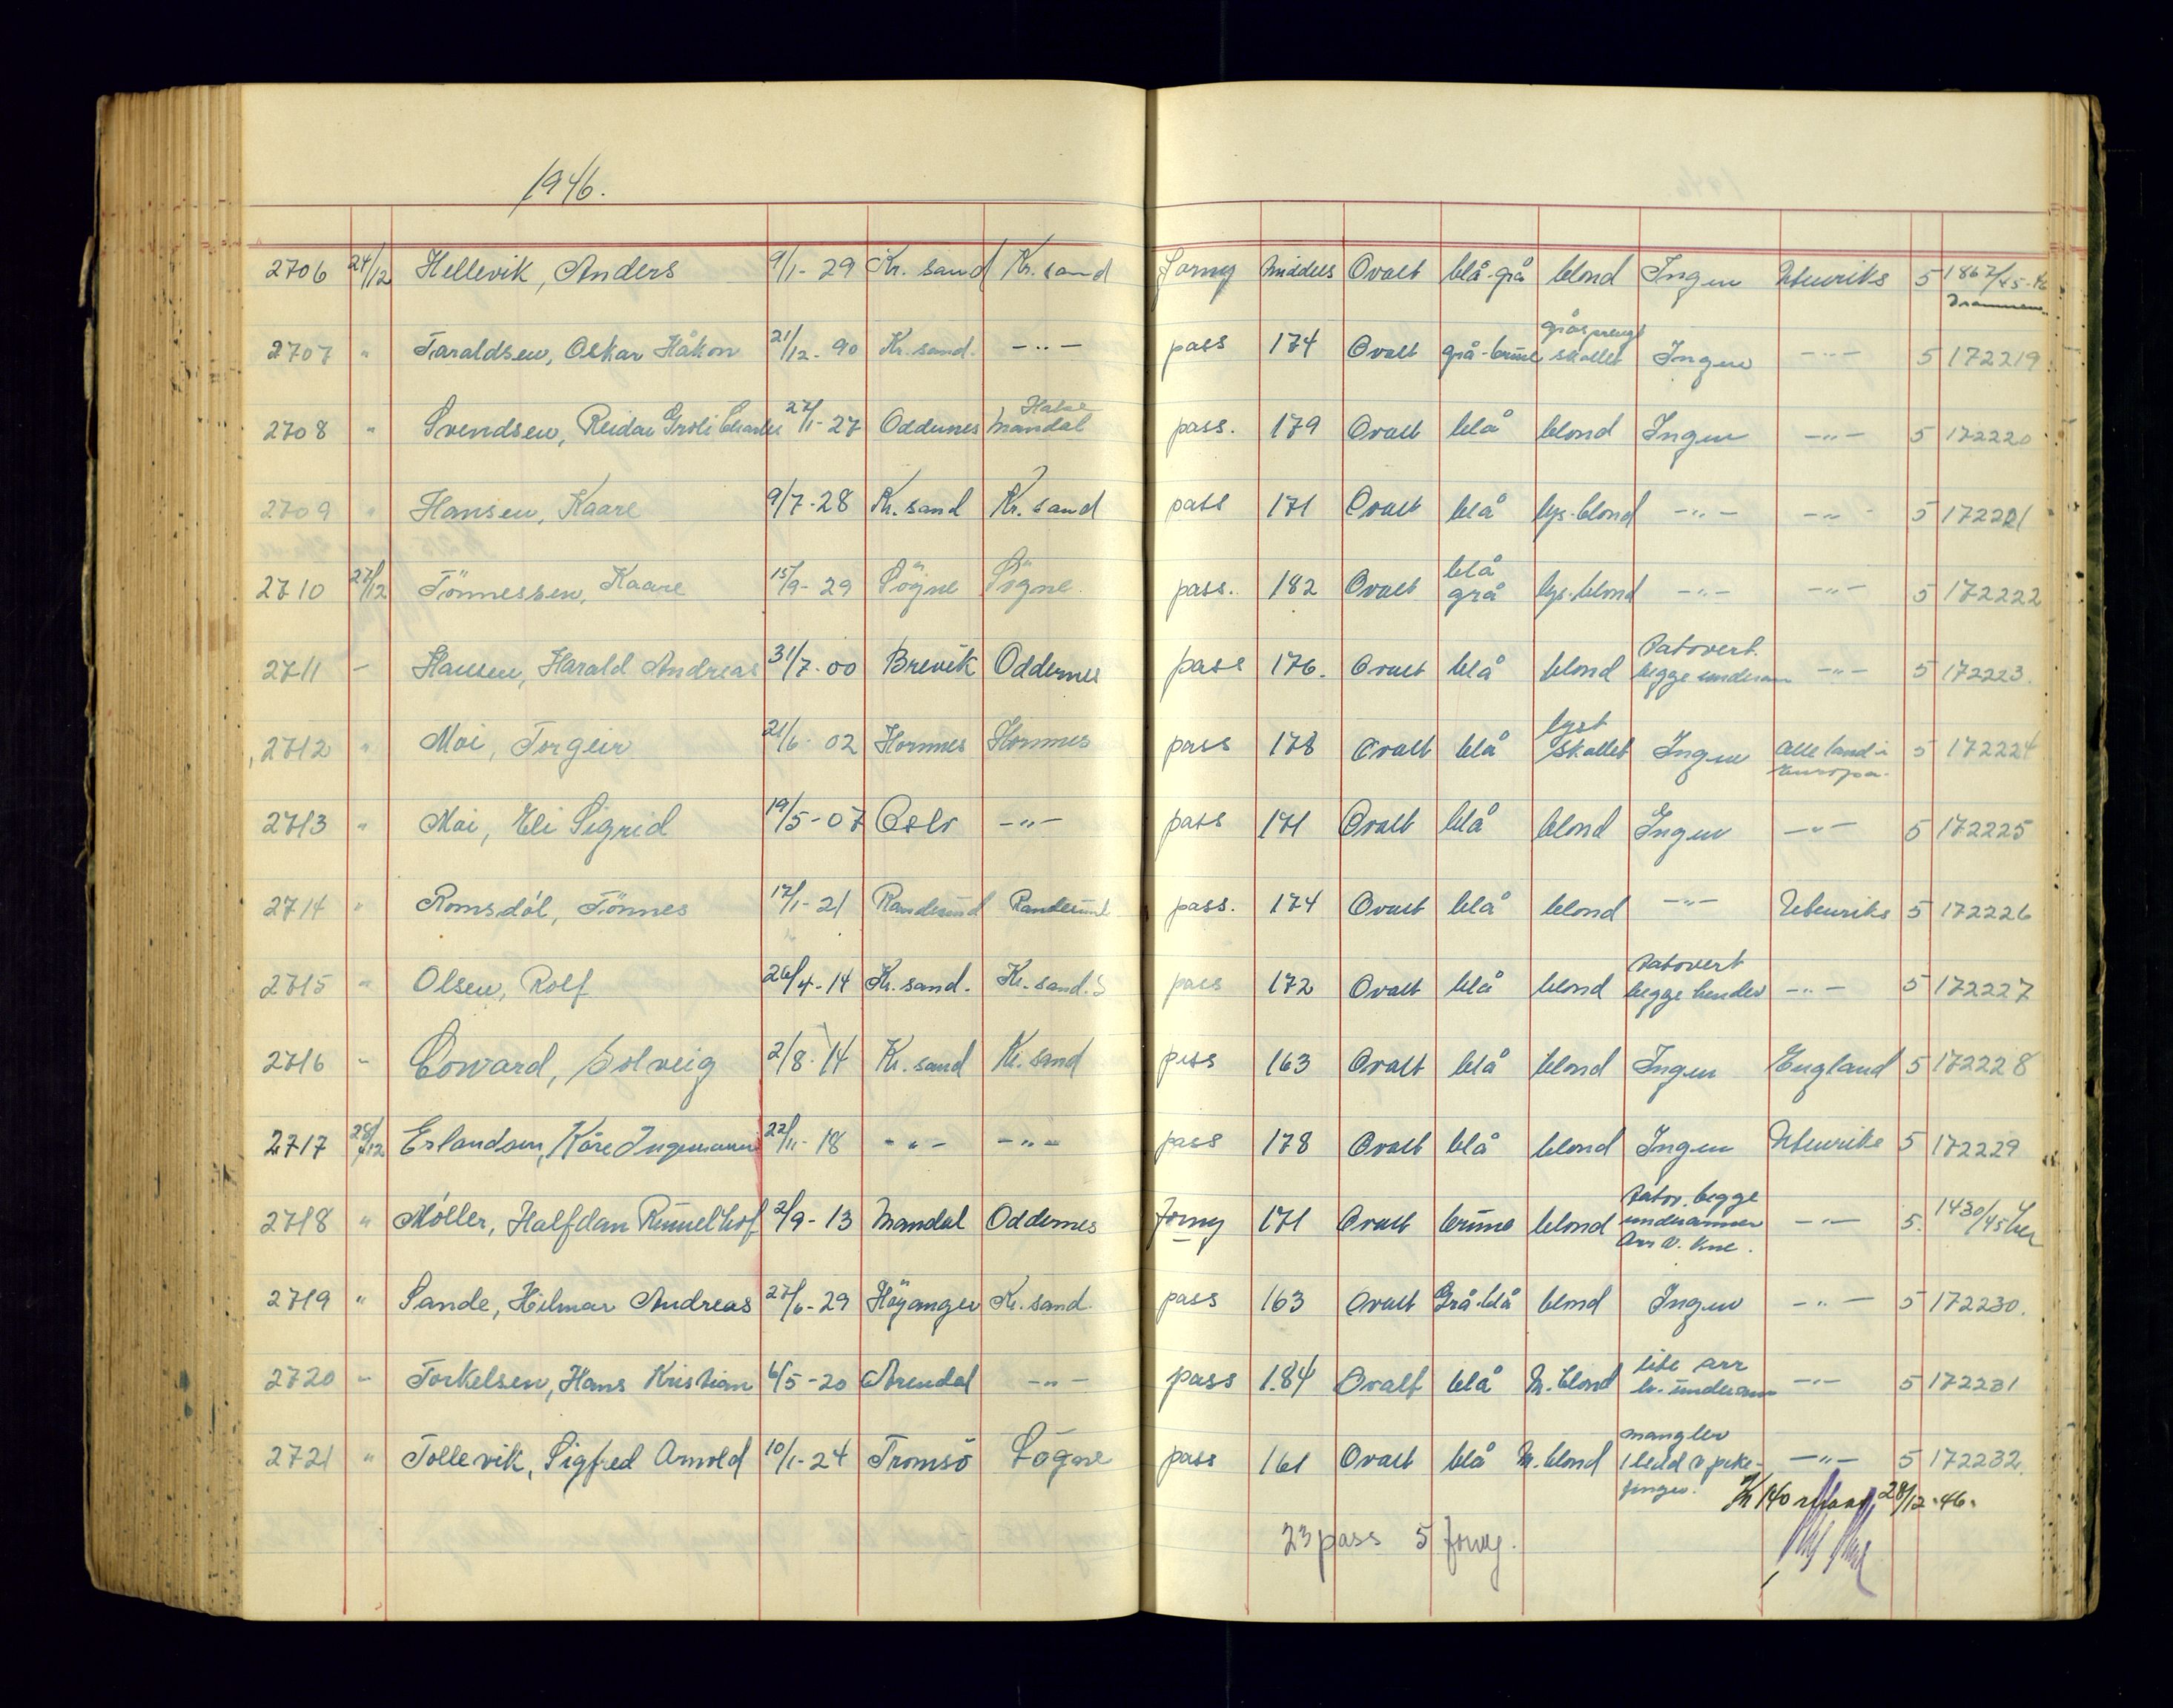 1946.
2706 24/12 Hellevik, Anders 9/1-29 Kr. sand Kr. sand Forny Middels Ovalt blå-grå blond Ingen Utenriks 5 1867/45-46 Drammen
2707 " Taraldsen, Oskar Håkon 21/12-90 Kr. sand. -"- pass 174 Ovalt grå-brune gråsprengt skallet Ingen -"- 5 172219
2708 " Svendsen, Reidar 27/1-27 Oddernes Halse Mandal pass. 179 Ovalt blå blond Ingen -"- 5 172220
2709 " Hansen, Kaare 9/7-28 Kr. sand Kr. sand pass 171 Ovalt blå lys-blond -"- -"- 5 172221
2710 27/12 Tönnessen, Kaare 15/9-29 Sögne Sögne. pass. 182 Ovalt blå grå lys-blond -"- -"- 5 172222
2711 - Hansen, Harald Andreas 31/7-00 Brevik Oddernes pass 176. Ovalt blå blond Tatovert. begge underarm -"- 5 172223.
2712 " Moi, Torgeir 21/6-02 Hornnes Hornnes pass 178 Ovalt blå lyst skallet Ingen alle land i Europa. 5 172224
2713 " Moi, Eli Sigrid 19/5-07 Oslo -"- pass 171 Ovalt blå blond Ingen -"- 5 172225
2714 " Romsdöl, Tönnes 17/1-21 Randesund Randesund pass. 174 Ovalt blå blond -"- Utenriks 5 172226
2715 " Olsen, Rolf 26/4-14 Kr. sand. Kr. sand. S pass 172 Ovalt blå blond tatovert begge hender -"- 5 172227
2716 - Coward, Solveig 2/8-14 Kr. sand Kr. sand pass 163 Ovalt blå blond Ingen England 5 172228
2717 28/12 Erlandsen, Kåre Ingemann 22/11-18 -"- -"- pass 178 Ovalt blå blond Ingen Utenriks 5 172229
2718 " Möller, Halfdan Rummelhof 2/9-13 Mandal Oddernes Forny 171 Ovalt brune blond tatov. begge underarmer Arr v. kne. -"- 5. 1430/45 her
2719 " Sande, Hilmar Andreas 27/6-29 Höyanger Kr. sand. pass 163 Ovalt Grå-blå blond Ingen -"- 5 172230.
2720 - Torkelsen, Hans Kristian 6/5-20 Arendal -"- pass 184 Ovalt blå M. blond lite arr h. underarm -"- 5 172231
2721 " Tollevik, Sigfred Arnold 10/1-24 Tromsö Sögne pass 161 Ovalt blå M. blond mangler 1 ledd v peke- finger. -"- 5 172232.
Kr 140 28/12-46.
23 pass 5 forny.